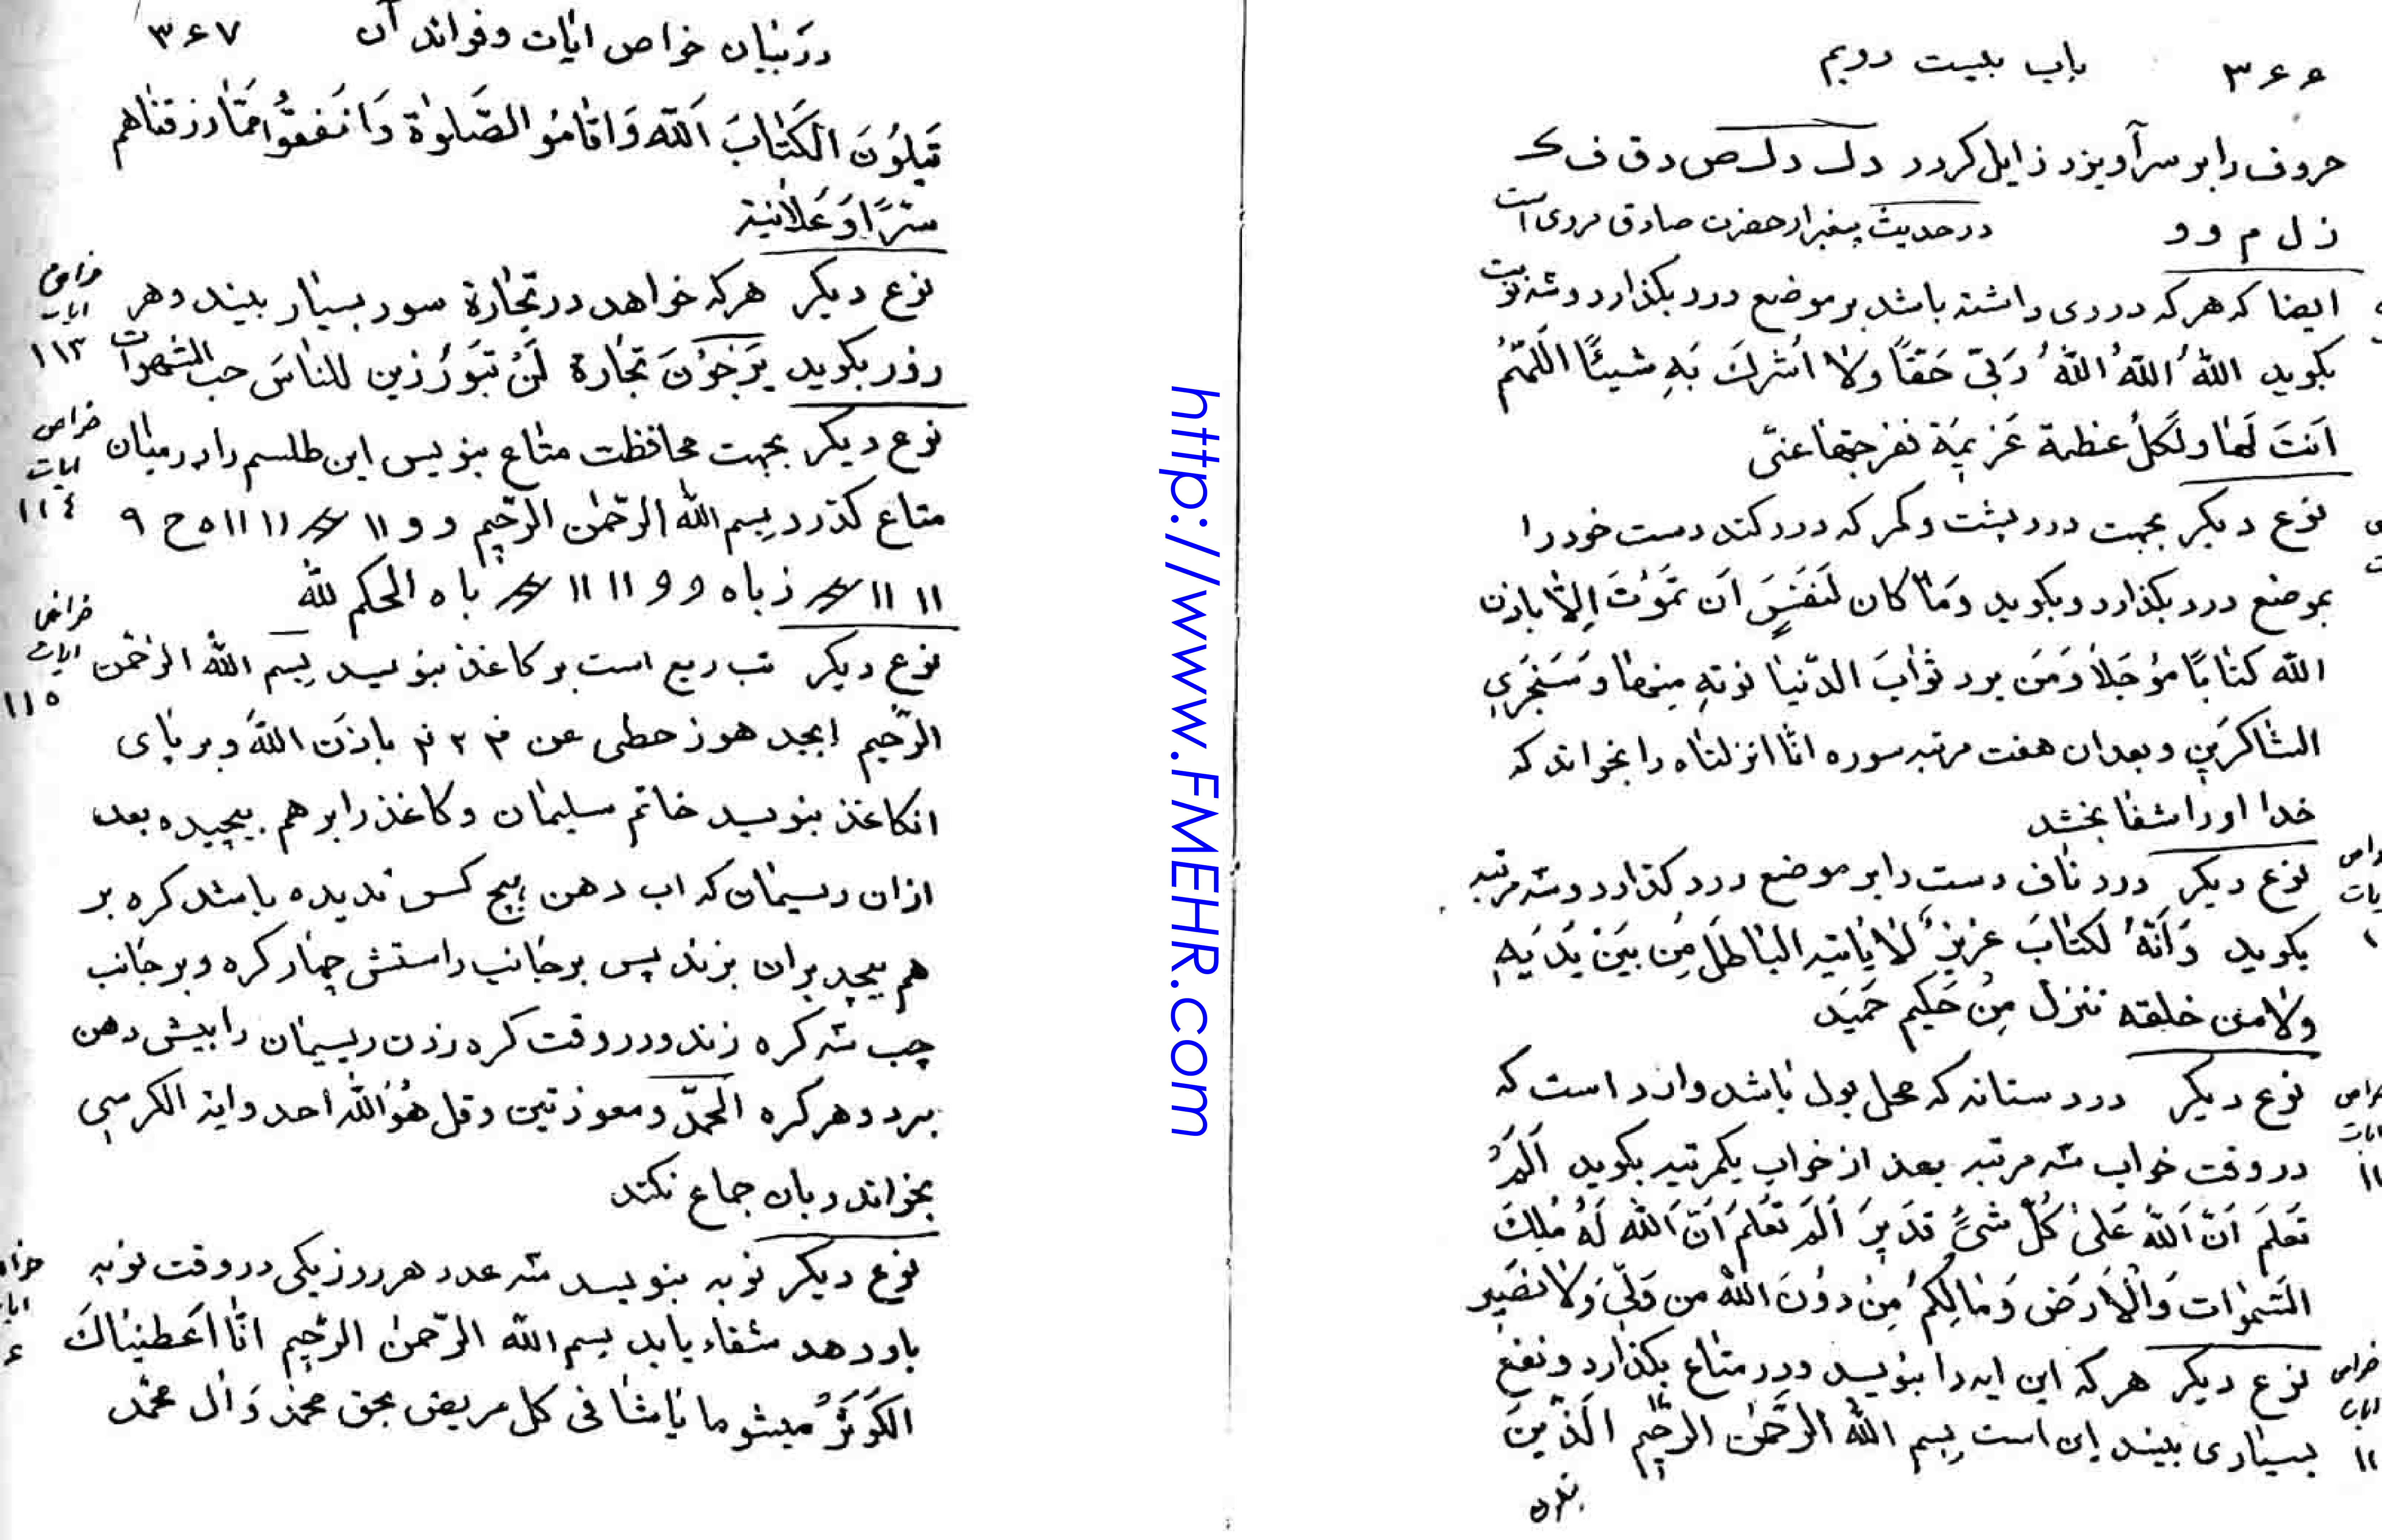 ۳۶۶ باب بیست دویم
حروف را بر سر آویزد زایل کردد د ک د ک ص د ق ف ک
ز ل م و و در حدیث پیغمبر از حضرت صادق مروی است
ایضا که هر که دردی داشته باشد بر موضع درد بکذارد و سه نوبت
بکوید اَللّٰهُ اَللّٰهُ اَللّٰهُ رَبّی حَقّاً وَلا اُشْرِكَ بَهِ شَیئًا اَللّهُمَّ
اَنتَ لَهٰا و لَکُلّ عظمة ففرجها عنّی
نوع دیکر بجهت درد پشت و کمر که درد کند دست خود را
بموضع درد بکذارد و بکوید وَمٰا کان لَنَفسٍ اَن تَمَوُتَ اِلّٰا باذن
اللّه کتٰابًا مُؤجَلاً وَمَن یرد ثوٰابَ الدّنیٰا نوتهِ منهٰا وَسَنَجَزِی
الشٰاکرَینِ و بعد ان هفت مرتبه سوره انّا انزلناه را بخواند که
خدا او را شفا بخشد
نوع دیکر درد ناف دست را بر موضع درد کذارد و سه مرتبه
بکوید وَاَنّهُ لکتٰابَ عزیزٌ لاٰ یٰاتیه البٰاطلَ مِن بَینَ یَدَیهِ
ولاٰ من خلفه تنزل مِنْ حَکیم حَمَید
نوع دیکر درد ستانه که محل بول باشد وارد است که
در وقت خواب سه مرتبه بعد از خواب یکمرتبه بکوید اَلَمْ
تَعلَمَ اَنّ اَللّٰهَ عَلیٰ کُلّ شَیءً قدَیرَ اَلَمْ تَعلَمَ اَنّ اَللّٰه لَهُ مُلكَ
السَمٰوٰات وَالْاَرَضَ وَمٰا لَکُمُ مِنْ دوُنَ اللّٰه من وَلّیَ وَلاٰ نصَیر
نوع دیکر هر که این ایه را بنویسد و در متاع بکذارد و نفع
بسیاری بیند این است بِسم اللّٰه الرَحّمٰن الرحّیم اَلَذّینَ
یتلون
۳۶۷ در بیان خواص ایات و فوائد آن
یَتلوُنَ الَکتٰابَ اَللّه وَاقٰامُو الصَّلوٰة وَاَنفَقوُا مَمّٰا رزقنٰاهم
سَرًّا وَ عَلاٰنیة
نوع دیکر هر که خواهد در تجٰارة سود بسیٰار بیند و هر
روز بکوید یَرَجوُنَ تجٰارة لَنْ تَبوَرُ زین للنٰاسَ حب الشهوات
نوع دیکر بجهت محافظت متاع بنویس این طلسم را در میان
متاع کذرد بِسم اللّٰه الرَحّمٰن الرحّیم و و ۱۱ ۱۱ ۱۱ ه ح ۹
۱۱ ۱۱ ز باه و و ۱۱ ۱۱ با ه الحکم للّٰه
نوع دیکر تب ربع است بر کاغذ بنویسد بِسم اللّٰه الرحّمٰن
الرّحیم ابجد هوز حطی عن باذن اللّٰهَ و بر پای
انکاغذ بنویسد خاتم سلیمان و کاغذ را بر هم پیچیده بعد
ازان ریسمان که اب دهن هیچ کس ندیده باشد کره بر
هم پیچد بران بزند پس بر جانب راستش چهار کره و بر جانب
چپ سه کره زند و در وقت کره زدن ریسمان را پیش دهن
برد و هر کره الحمدّ و معوذتین و قل هُوَ اللّٰه احد و ایة الکرسی
بخواند و بان جماع نکند
نوع دیکر نوبه بنویسد سه عدد هر روز یکی در وقت نوبه
باو دهد شفاء یابد بسم اللّه الرّحمٰن الرحّیم انّٰا اَعَطینٰاكَ
الکَوَثَرُ میشو ما یٰاشٰا فی کل مریض بحق محمدّ وَ اٰل محمدّ
خواص
ایات
۱۱۳
خواص
ایات
۱۱٤
خواص
ایات
۱۱٥
http://www.FMEHR.com